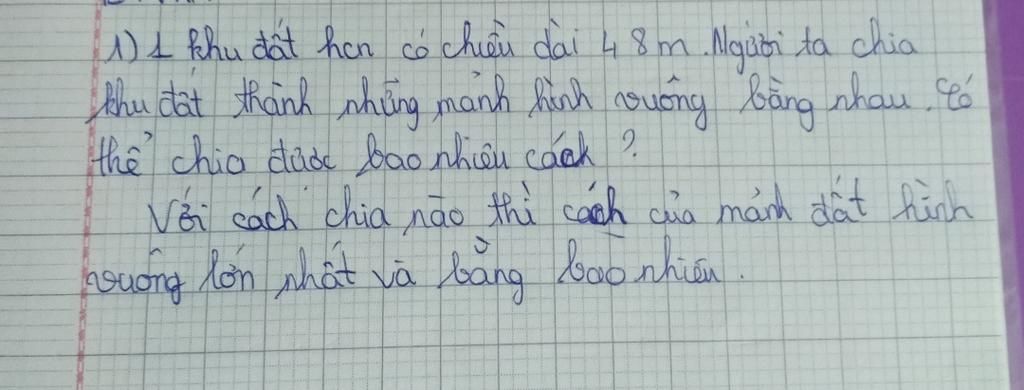 1) 1 khu đất hcn có chiều dài 48m. Người ta chia
khu đất thành những mảnh hình vuông bằng nhau. Có
thể chia được bao nhiêu cách?
Với cách chia nào thì cách của mảnh đất hình
vuông lớn nhất và bằng bao nhiêu.